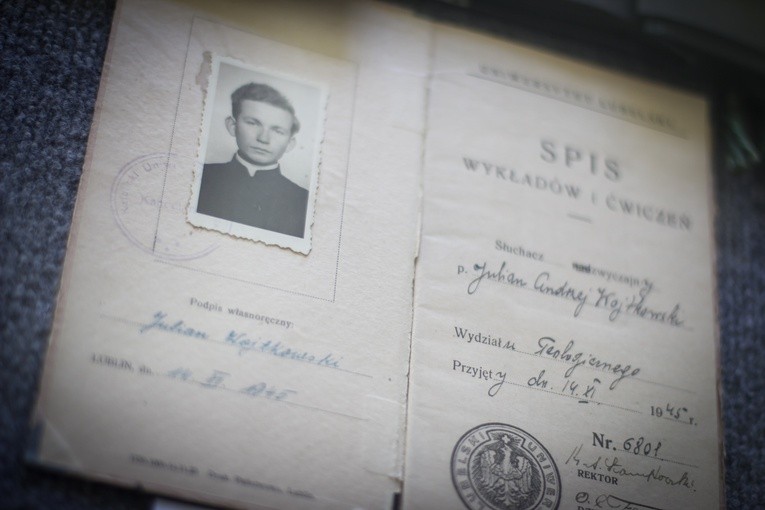 Podpis własnoręczny:
Julian Wojtkowski
LUBLIN, dn. 14 XI 1945
UNIWERSYTET LUBELSKI
SPIS
WYKŁADÓW I ĆWICZEŃ
Słuchacz nadzwyczajny
p. Julian Andrzej Wojtkowski
Wydziału Teologicznego
Przyjęty dn. 14.XI. 1945 r.
Nr. 6801
REKTOR